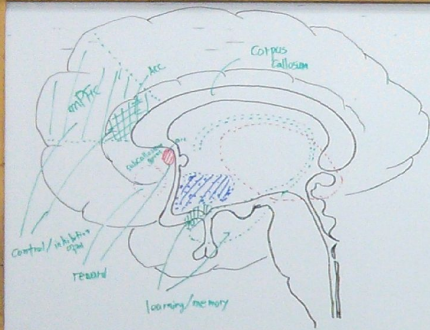 Corpus
Callosum
ACC
mPFC
subcallosal
control/inhibition
reward
learning/memory